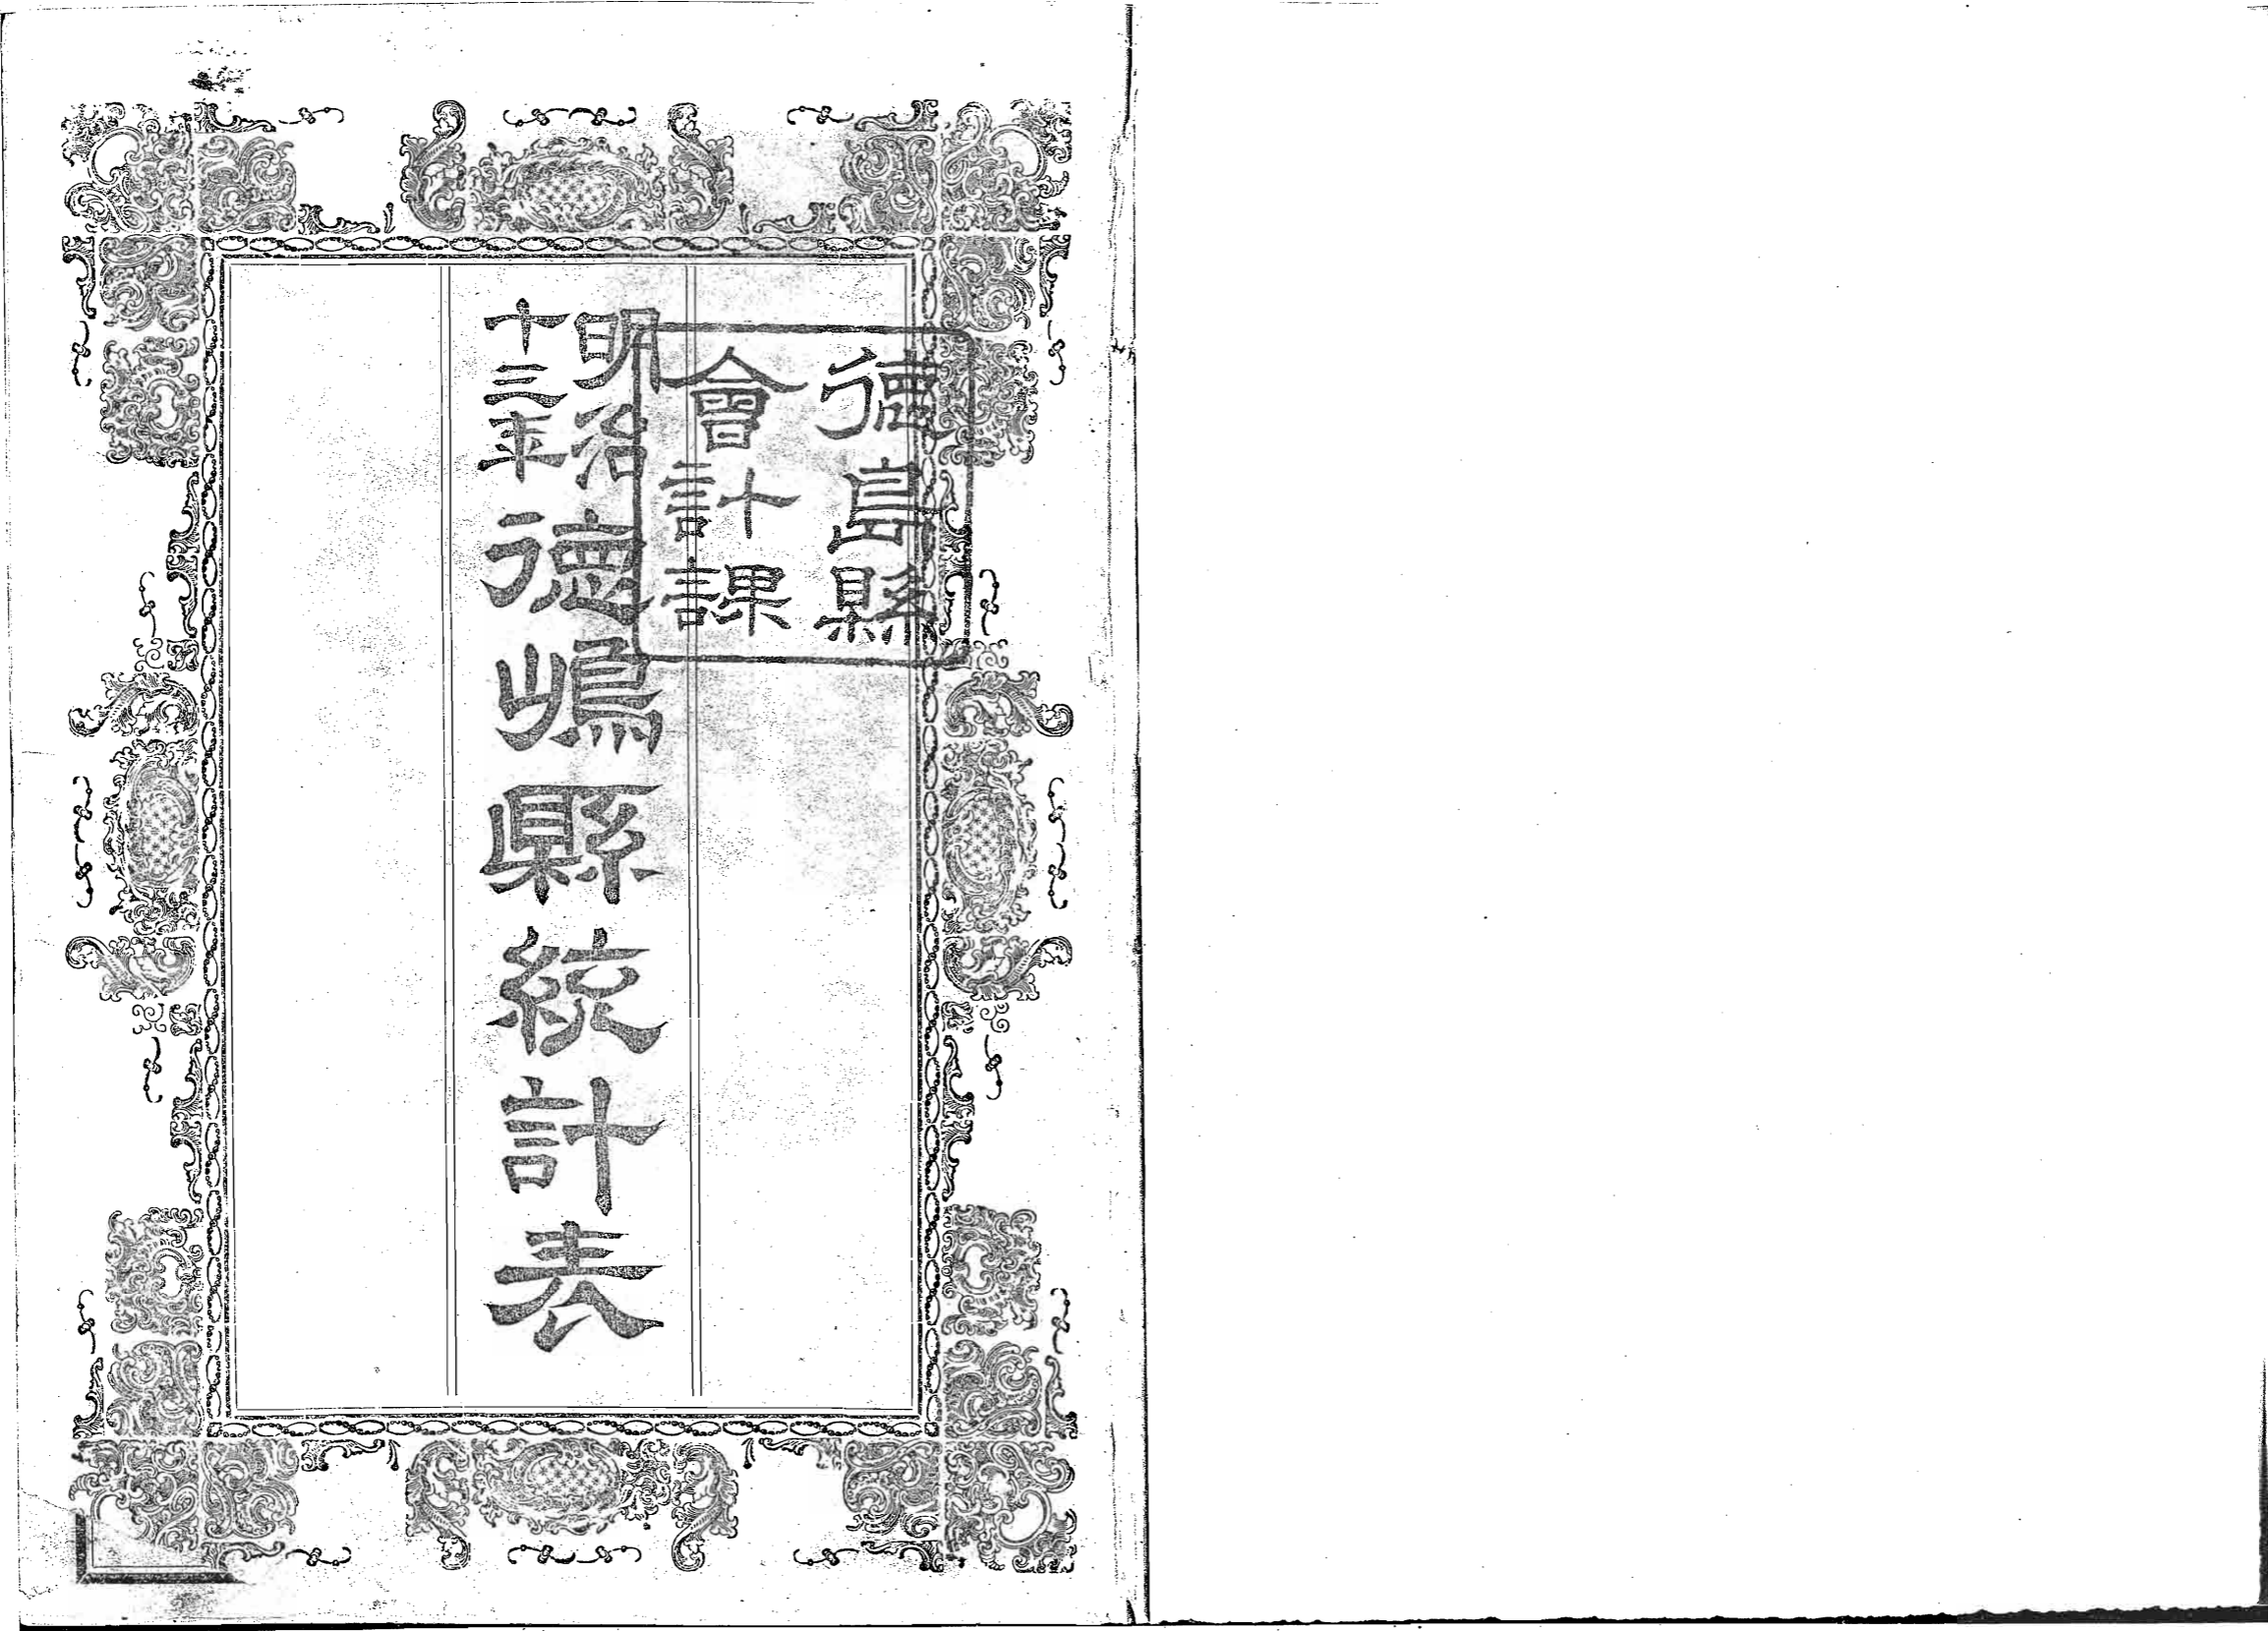 徳島縣
會計課
明治
十三年
徳嶋縣統計表